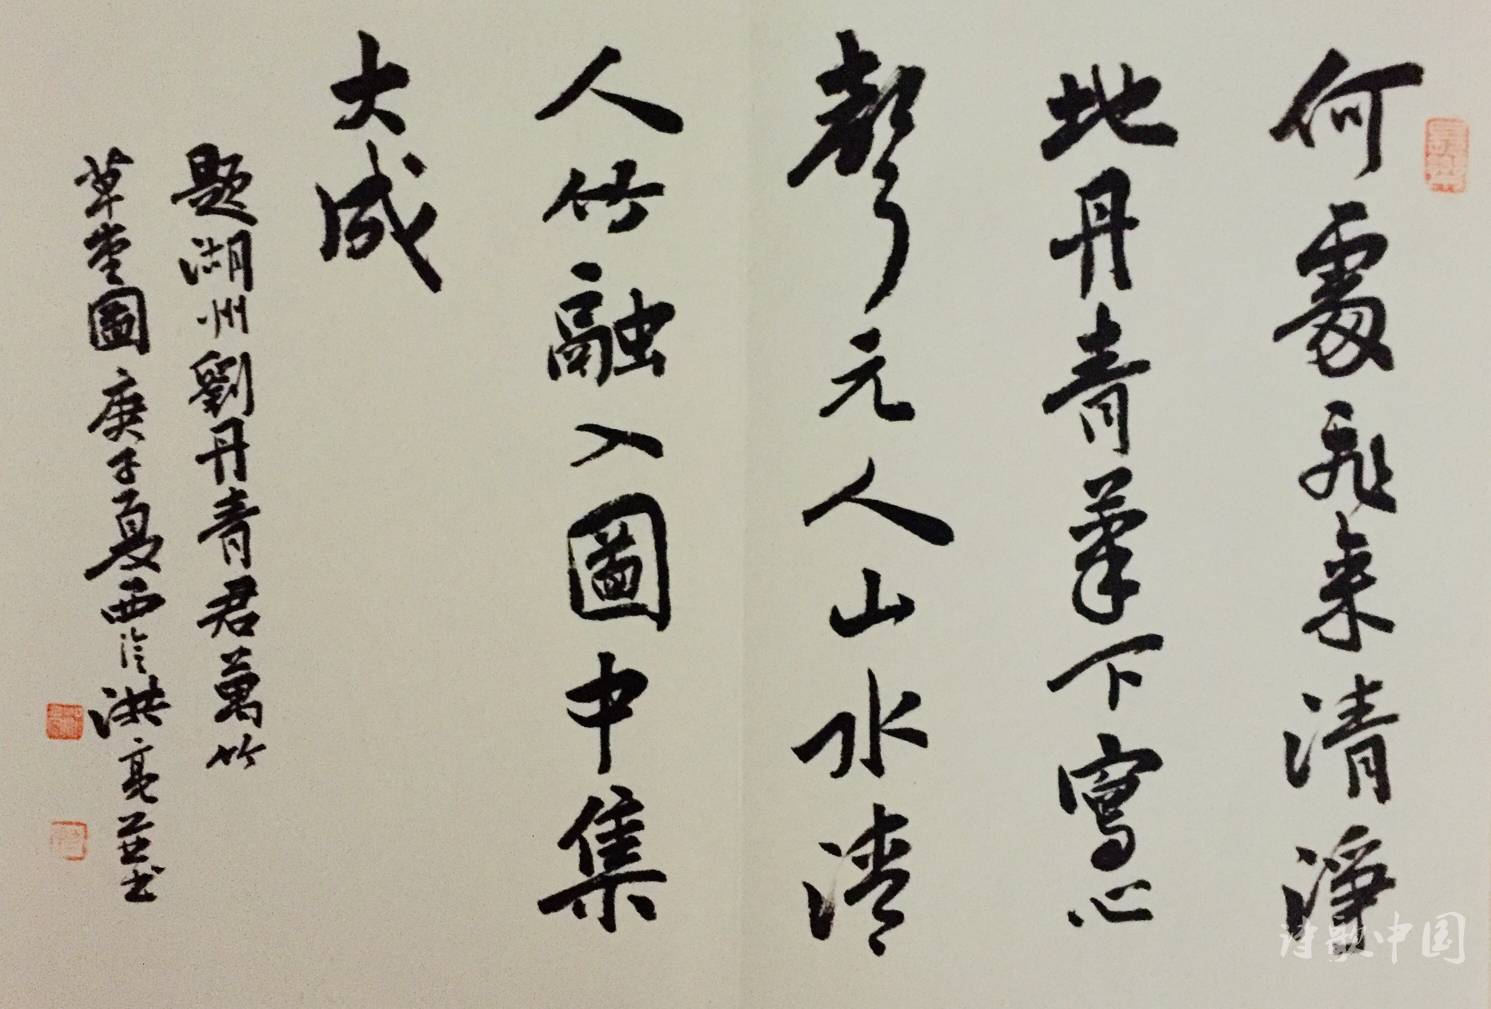 何處飛來清淨
地丹青筆下寫心
聲元人山水清
人竹融入圖中集
大成
題湖州劉丹青君萬竹
草堂圖庚子夏西泠洪亮並书
诗歌中国